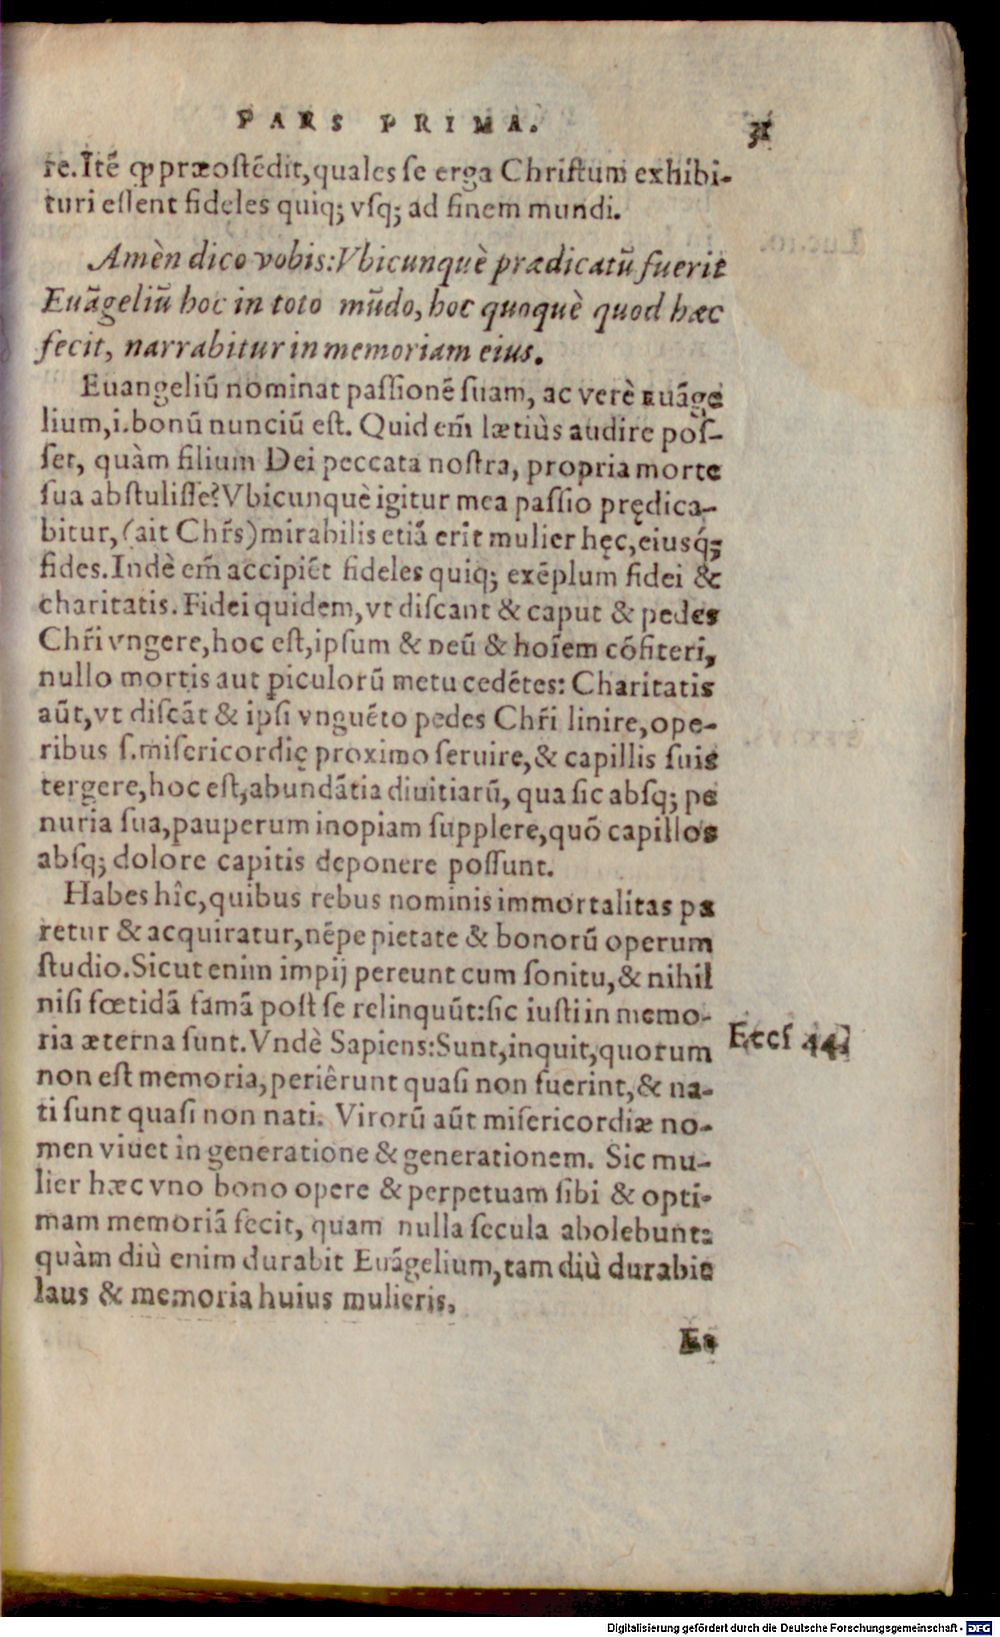 PARS PRIMA. 31
re. Itē ꝙ præostēdit, quales se erga Christum exhibi-
turi essent fideles quiq; vsq; ad finem mundi.
Amèn dico vobis: Vbicunquè prædicatū fuerit
Euāgeliū hoc in toto mūdo, hoc quoquè quod hæc
fecit, narrabitur in memoriam eius.
Euangeliū nominat passionē suam, ac verè euāge
lium, i. bonū nunciū est. Quid em̄ lætiùs audire pos-
set, quàm filium Dei peccata nostra, propria morte
sua abstulisse? Vbicunquè igitur mea passio prędica-
bitur, (ait Chr̄s) mirabilis etiā erit mulier hęc, eiusq́;
fides. Indè em̄ accipiēt fideles quiq; exēplum fidei &
charitatis. Fidei quidem, vt discant & caput & pedes
Chr̄i vngere, hoc est, ipsum & Deū & hoīem cōfiteri,
nullo mortis aut ꝑiculorū metu cedētes: Charitatis
aūt, vt discāt & ipsi vnguēto pedes Chr̄i linire, ope-
ribus s. misericordię proximo seruire, & capillis suis
tergere, hoc est, abundātia diuitiarū, qua sic absq; pe
nuria sua, pauperum inopiam supplere, quō capillos
absq; dolore capitis deponere possunt.
Habes hîc, quibus rebus nominis immortalitas pa
retur & acquiratur, nēpe pietate & bonorū operum
studio. Sicut enim impij pereunt cum sonitu, & nihil
nisi fœtidā famā post se relinquūt: sic iusti in memo-
ria æterna sunt. Vndè Sapiens: Sunt, inquit, quorum
Eccſ 44.
non est memoria, periêrunt quasi non fuerint, & na-
ti sunt quasi non nati. Virorū aūt misericordiæ no-
men viuet in generatione & generationem. Sic mu-
lier hæc vno bono opere & perpetuam sibi & opti-
mam memoriā fecit, quam nulla secula abolebunt:
quàm diù enim durabit Euāgelium, tam diù durabit
laus & memoria huius mulieris.
Digitalisierung gefördert durch die Deutsche Forschungsgemeinschaft - DFG